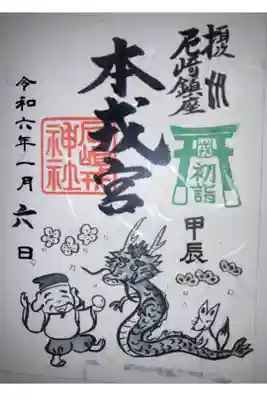 摂州
尼崎鎮座
初詣
甲辰
本戎宮
尼崎戎
神社
令和六年一月六日